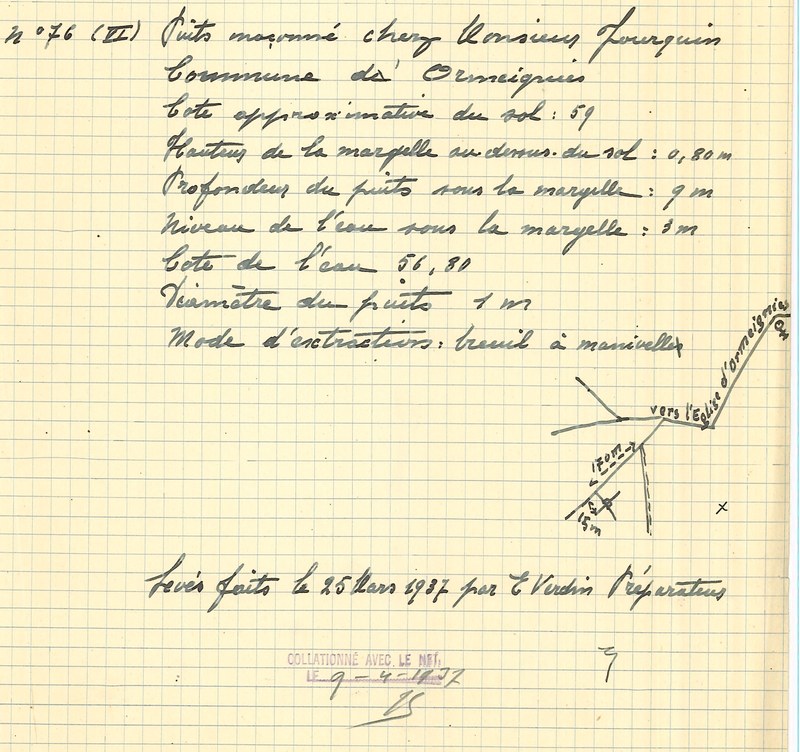 N°76 (VI) Puits maçonné chez Monsieur Jourquin
Commune de Ormeignies
Cote approximative du sol : 59
Hauteur de la margelle au-dessus du sol : 0,80 m
Profondeur du puits sous la margelle : 9 m
Niveau de l'eau sous la margelle : 3 m
Cote de l'eau 56,80
Diamètre du puits 1 m
Mode d'extraction : treuil à manivelles
vers l'Eglise d'Ormeignies
170m
15m
Levés faits le 25 Mars 1937 par E Verdin Préparateur
COLLATIONNÉ AVEC LE
LE 9-4-1937